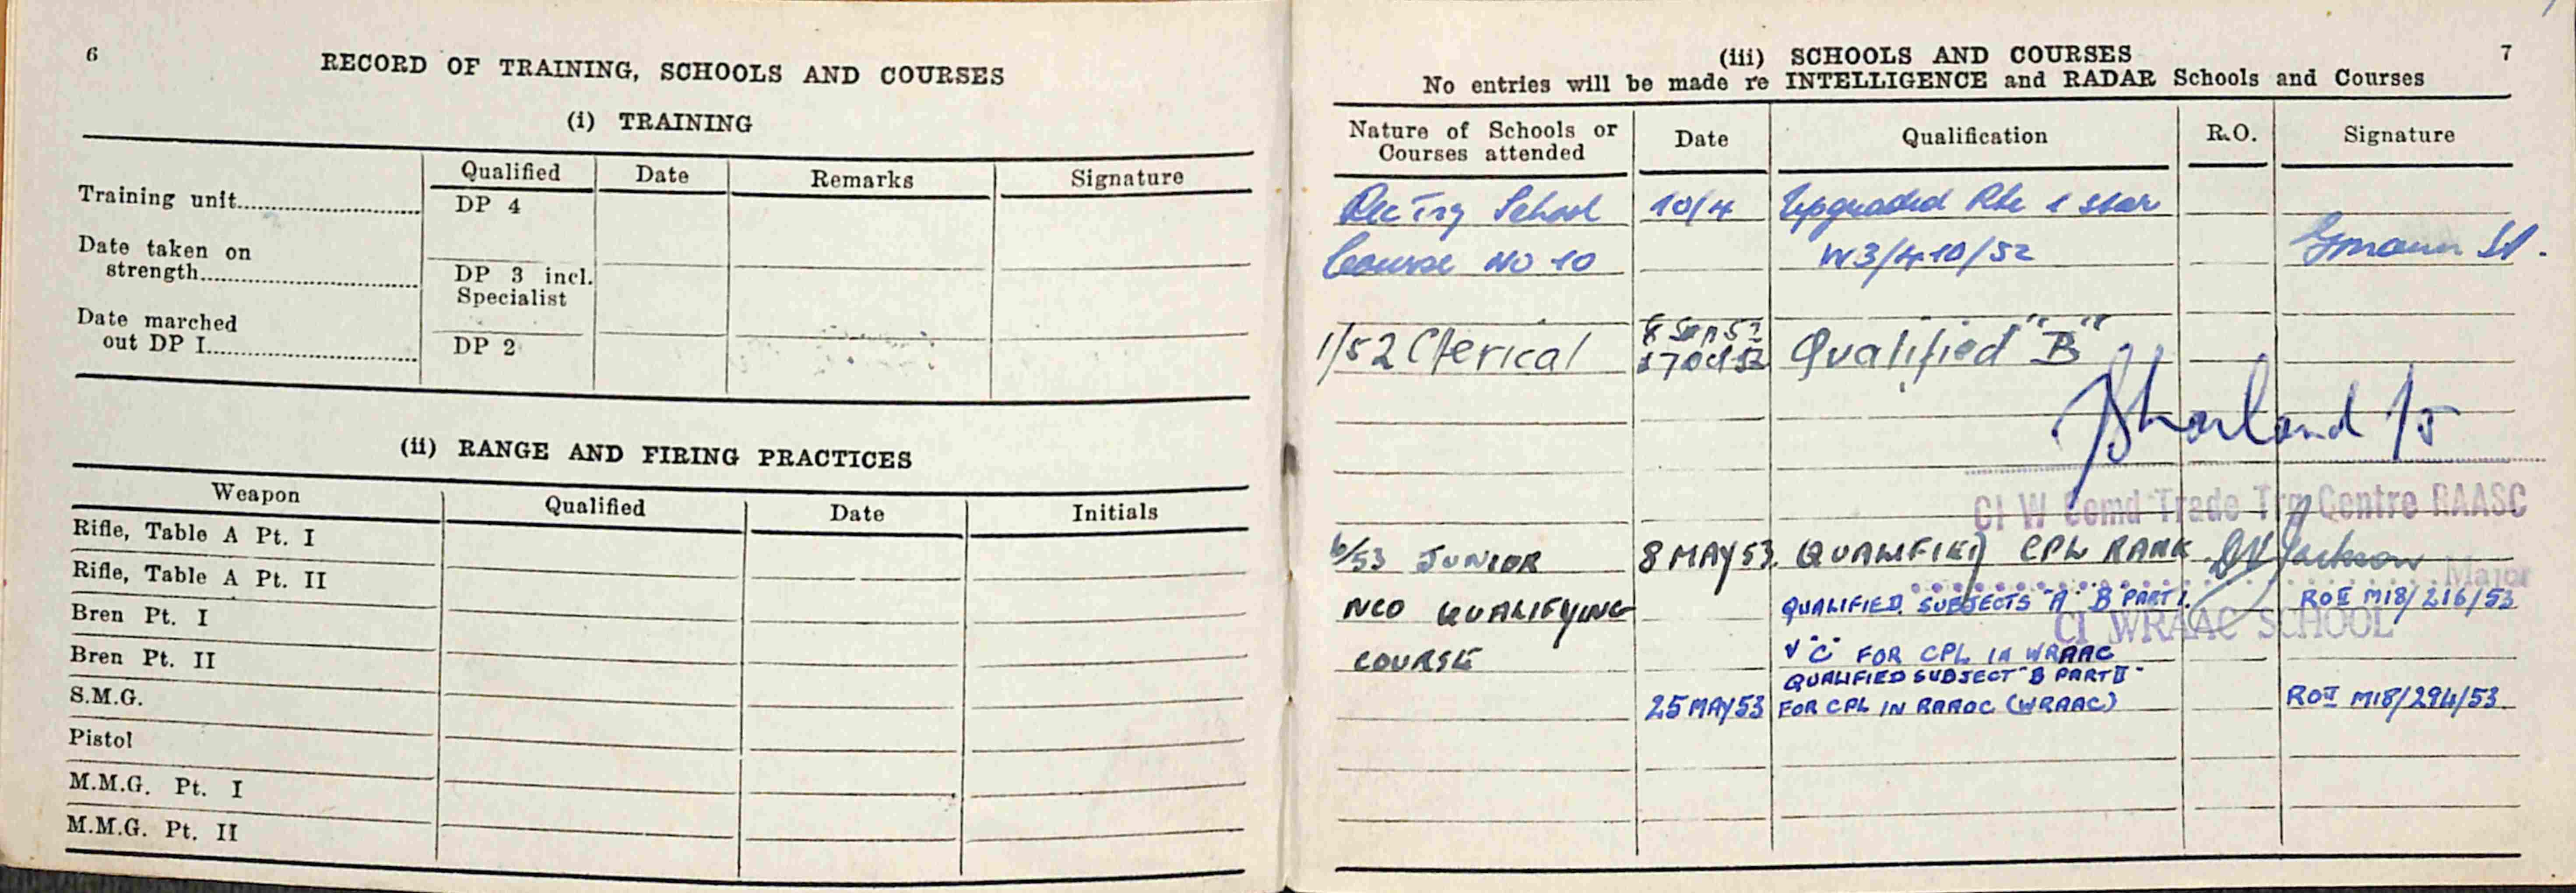 6
RECORD OF TRAINING, SCHOOLS AND COURSES
(i) TRAINING
Qualified Date Remarks Signature
Training unit DP 4
Date taken on
strength DP 3 incl.
Specialist
Date marched
out DP I DP 2
(ii) RANGE AND FIRING PRACTICES
Weapon Qualified Date Initials
Rifle, Table A Pt. I
Rifle, Table A Pt. II
Bren Pt. I
Bren Pt. II
S.M.G.
Pistol
M.M.G. Pt. I
M.M.G. Pt. II
(iii) SCHOOLS AND COURSES 7
No entries will be made re INTELLIGENCE and RADAR Schools and Courses
Nature of Schools or
Courses attended Date Qualification R.O. Signature
Rec Trg School 10/4 Upgraded Rte 1 star
Course NO 10
1/52 Clerical Qualified "B"
CI W Comd Trade Trg Centre RAASC
6/53 JUNIOR 8 MAY 53 QUALIFIED CPL RANK Jackson
Major
NCO QUALIFYING QUALIFIED SUBJECTS "A" B PART I. RO II M18/216/53
CI WRAAC SCHOOL
COURSE "C" FOR CPL IN WRAAC
QUALIFIED SUBJECT "B PART II"
25 MAY 53 FOR CPL IN RAAOC (WRAAC) RO II M18/294/53